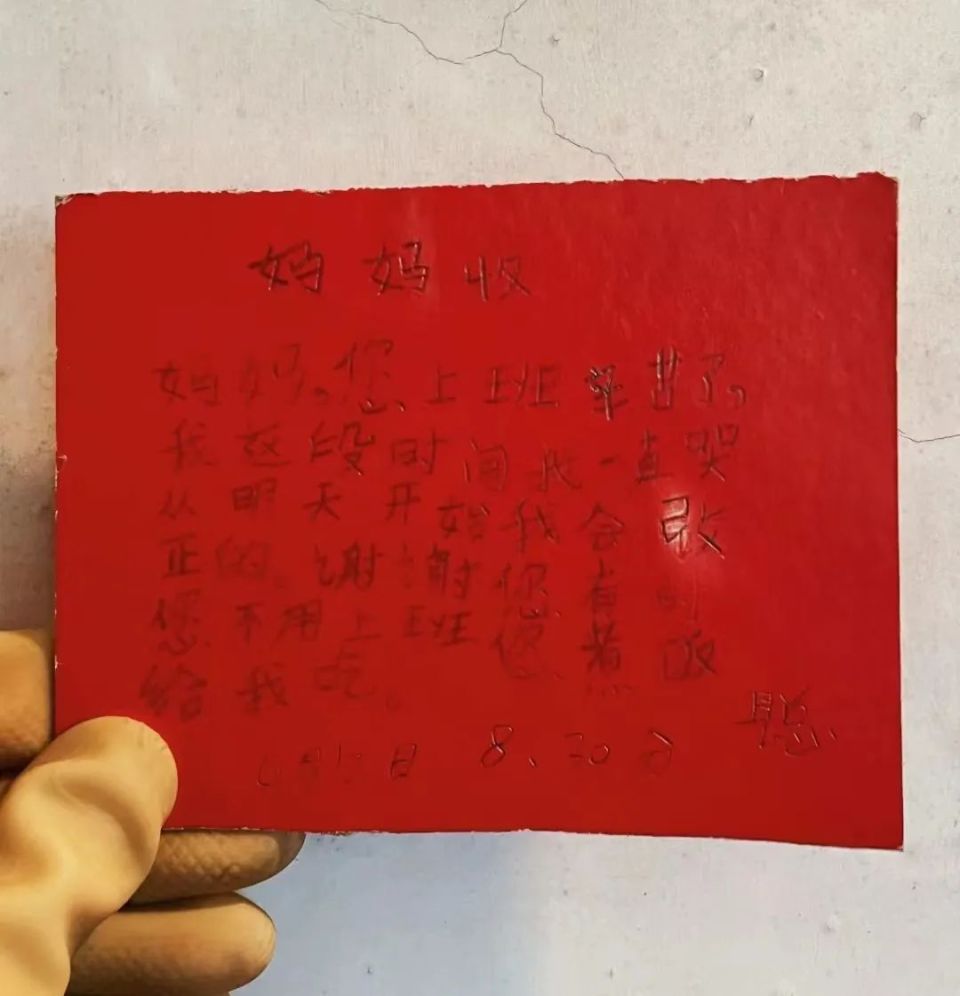 妈妈收
妈妈。您上班辛苦了。
我这段时间我一直哭
从明天开始我会改
正的。谢谢您有时
您不用上班您煮饭
给我吃。
聪
日 8.30分